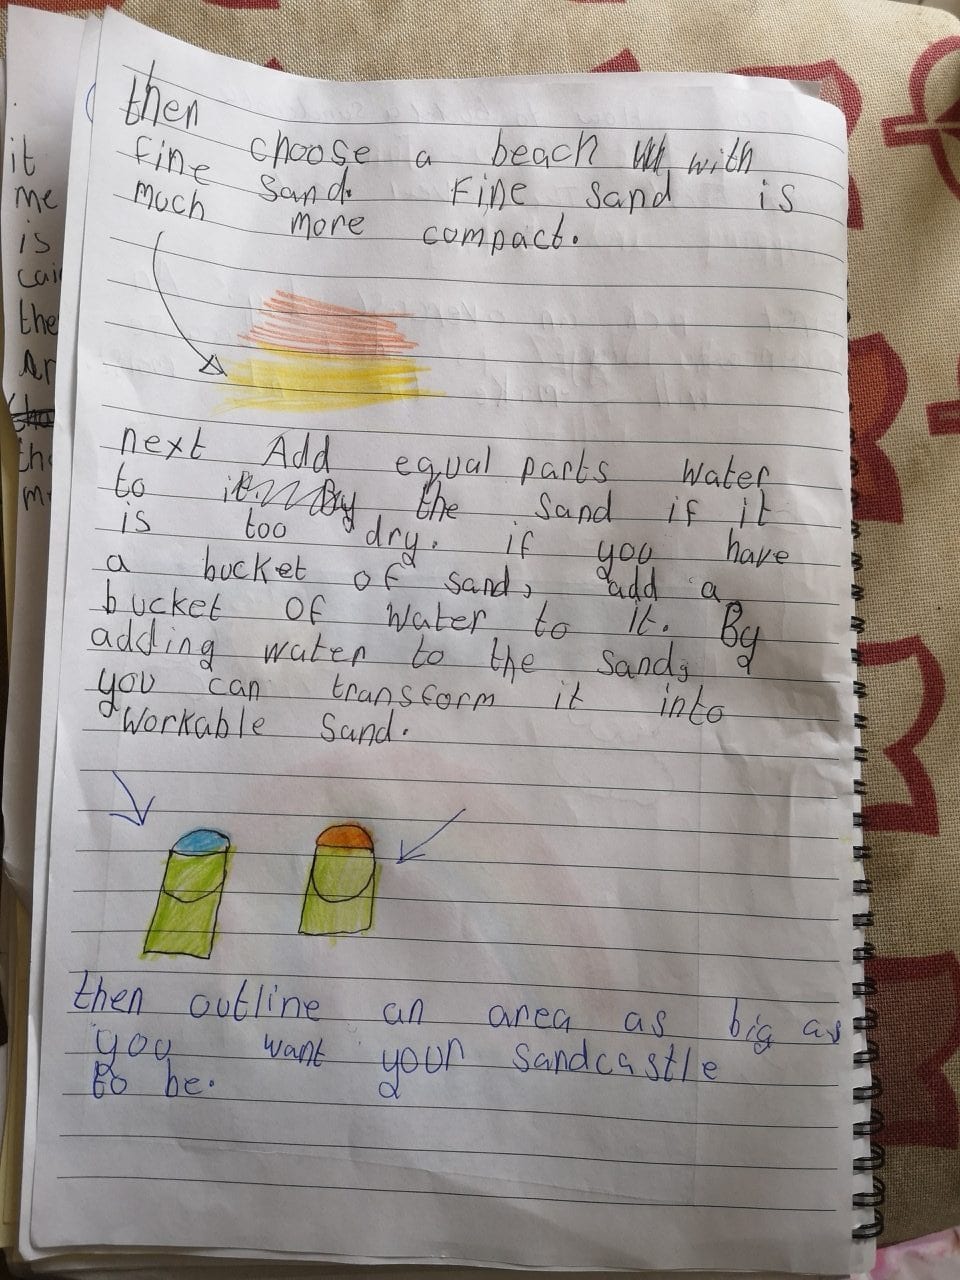 then
choose a beach with
fine sand. Fine sand is
much more compact.
next Add equal parts water
to the sand if it
is too dry. if you have
a bucket of sand, add a
bucket of water to it. By
adding water to the sand,
you can transform it into
workable sand.
then outline an area as big as
you want your sandcastle
to be.
it
me
is
cai
the
Ar
th
m